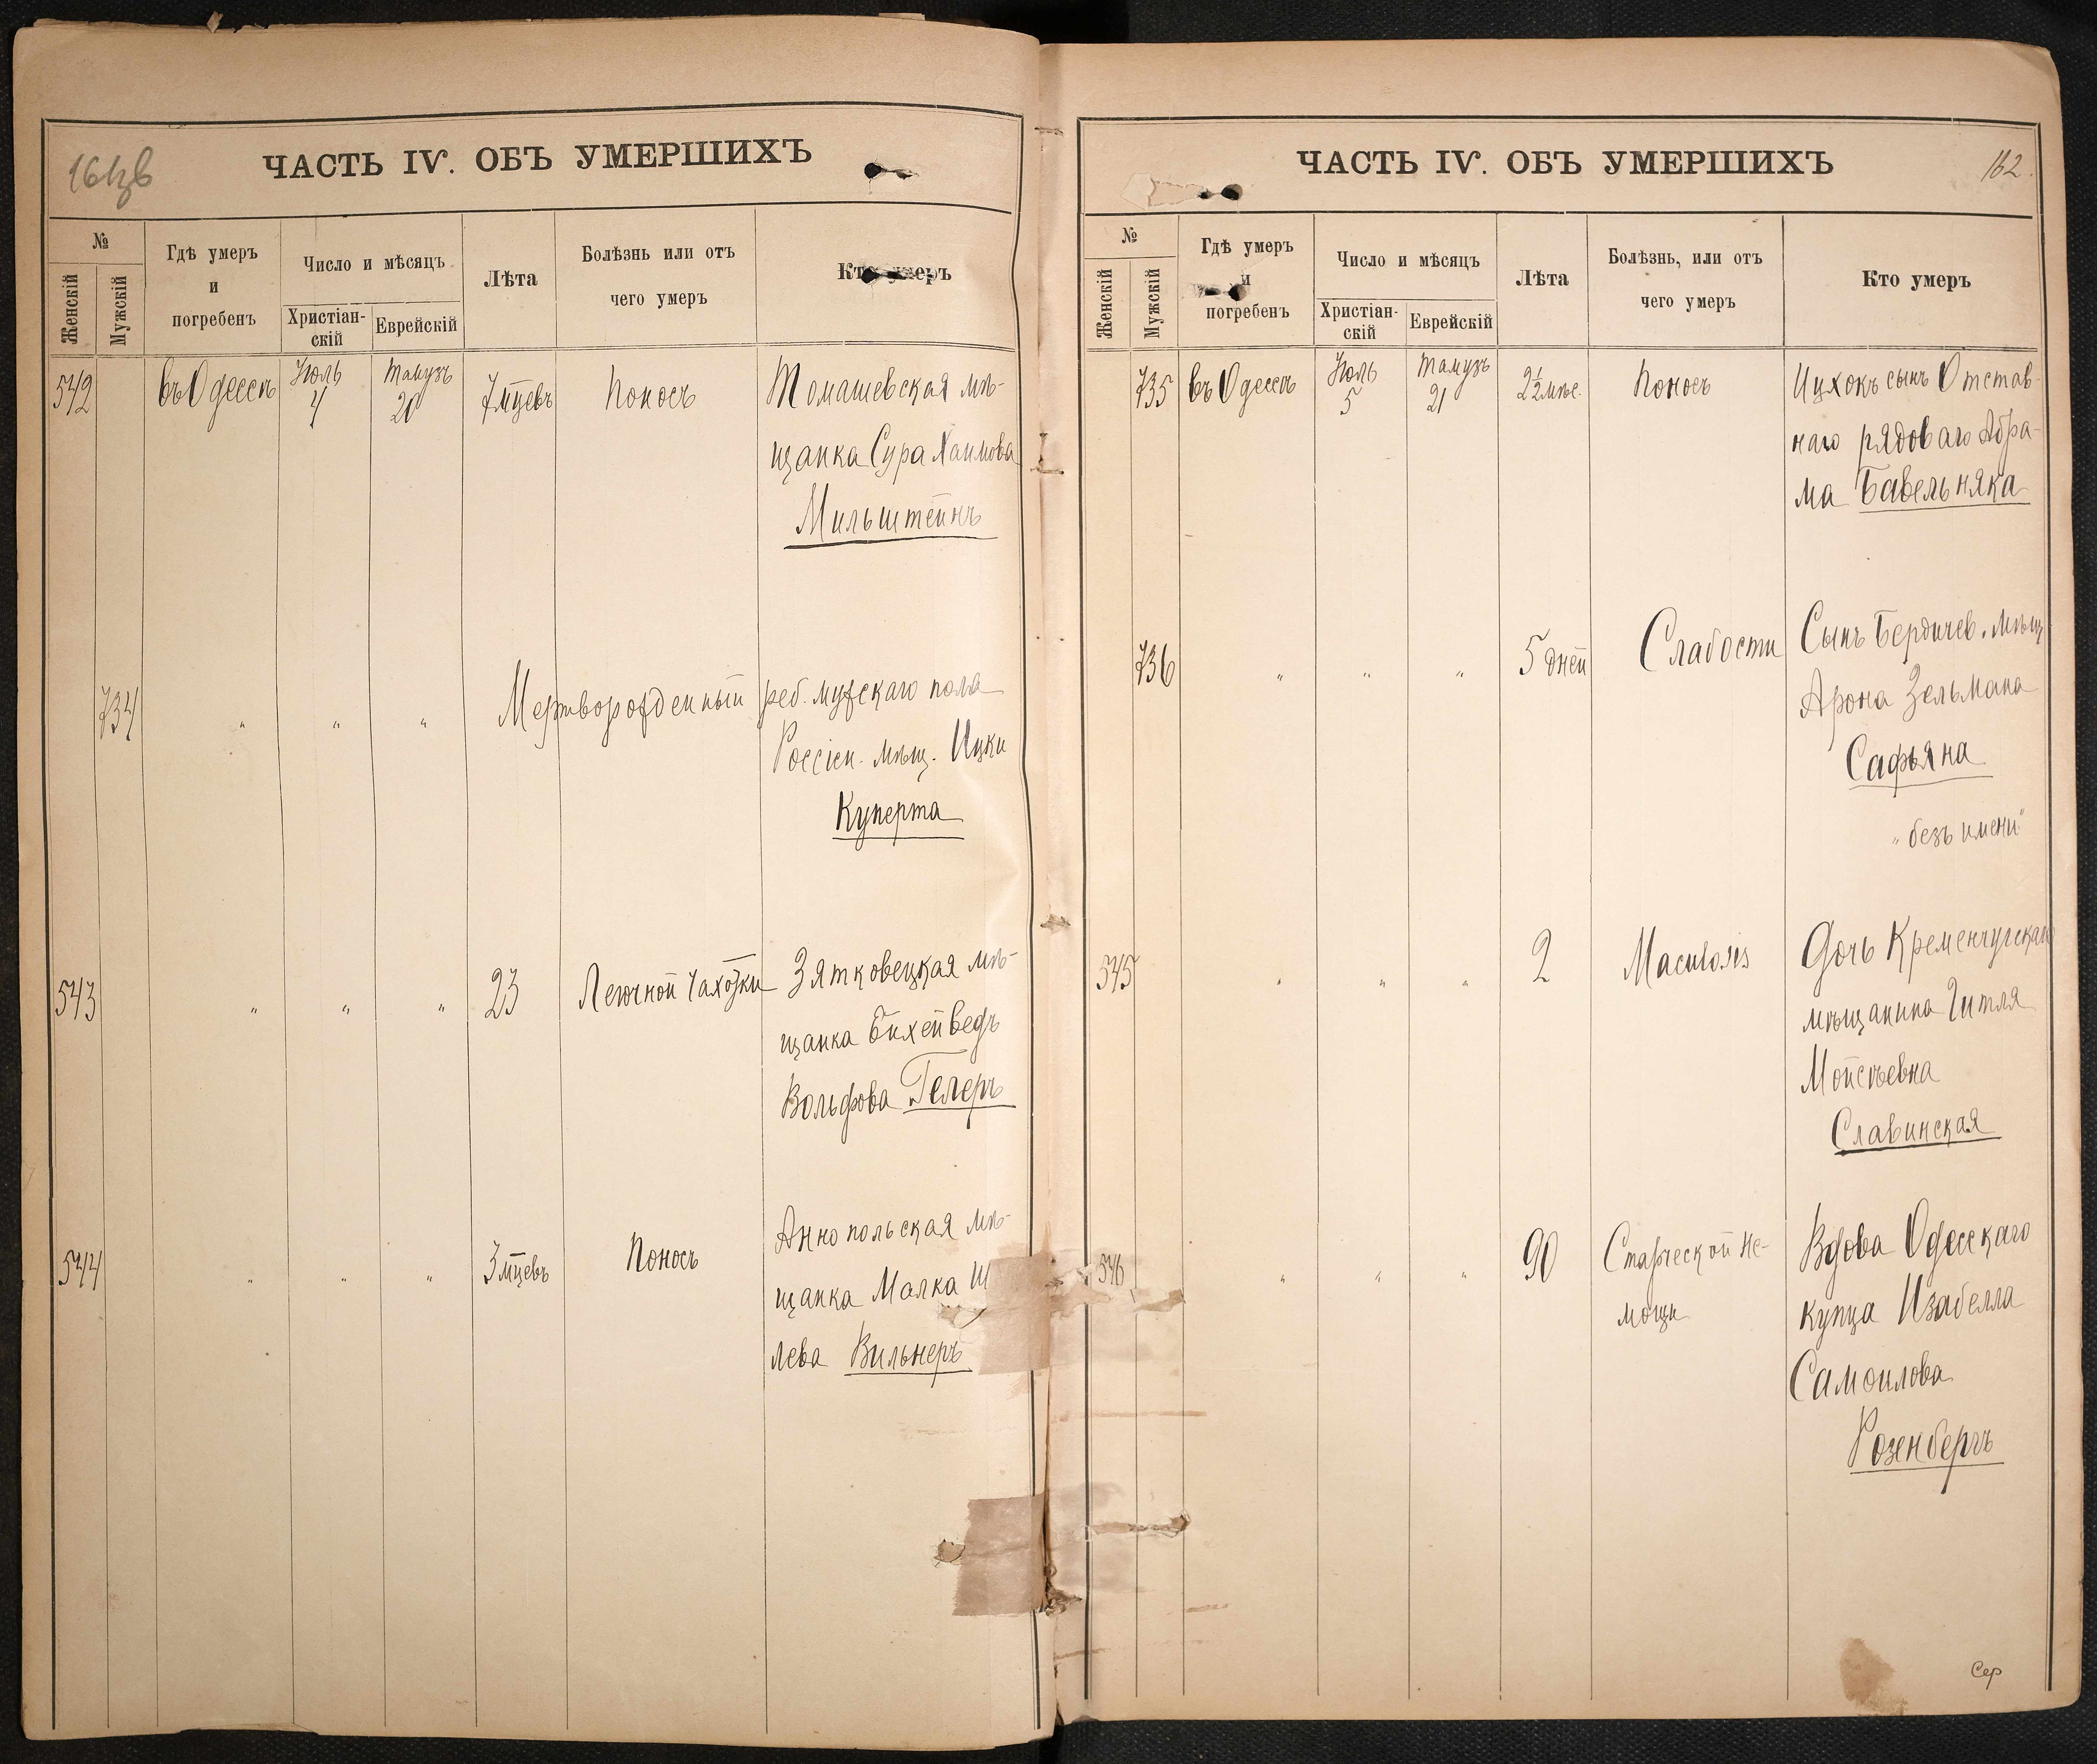 161зв
ЧАСТЬ IV. ОБЪ УМЕРШИХЪ
№
Женскій
Мужскій
Гдѣ умеръ
и
погребенъ
Число и мѣсяцъ
Христіан-
скій
Еврейскій
Лѣта
Болѣзнь или отъ
чего умеръ
Кто умеръ
542 въ Одессѣ Іюль 4 Тамузъ 20 7 мцевъ Поносъ Томашевская мѣ-
щанка Сура Хаимова
Мильштейнъ
734 " " " Мертворожденный реб. мужскаго пола
Россіен. мѣщ. Ицки
Куперта
543 " " " 23 Легочной чахотки Зятковецкая мѣ-
щанка
Вольфова Гелеръ
544 " " " 3 мцевъ Поносъ Аннопольская мѣ-
щанка Малка Ш
лева Вильнеръ
162.
ЧАСТЬ IV. ОБЪ УМЕРШИХЪ
№
Женскій
Мужскій
Гдѣ умеръ
и
погребенъ
Число и мѣсяцъ
Христіан-
скій
Еврейскій
Лѣта
Болѣзнь, или отъ
чего умеръ
Кто умеръ
735 въ Одессѣ Іюль 5 Тамузъ 21 2½ мѣс. Поносъ Ицхокъ сынъ Отстав-
наго рядоваго Абра-
ма Бавельняка
736 " " " 5 дней Слабости Сынъ Бердичев. мѣщ
Арона Зельмана
Сафьяна
"безъ имени"
545 " " " 2 Maculosis Дочь Кременчугскаго
мѣщанина Гитля
Мойсѣевна
Славинская
546 " " " 90 Старческой не-
мощи
Вдова Одесскаго
купца Изабелла
Самоилова
Розенбергъ
Сер